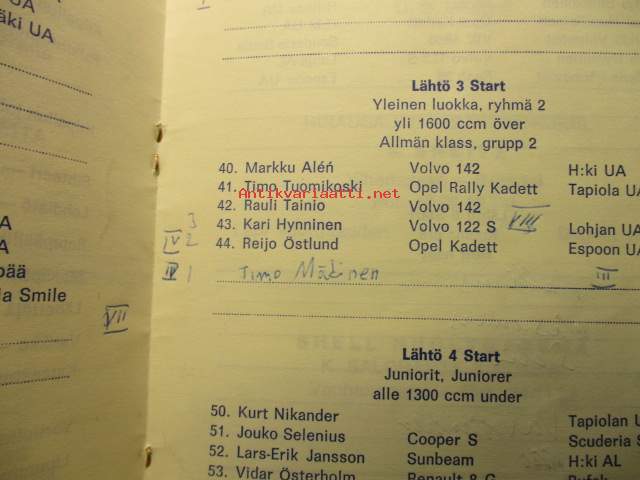 UA
äki UA
I
Lähtö 3 Start
Yleinen luokka, ryhmä 2
yli 1600 ccm över
Allmän klass, grupp 2
40. Markku Aléń Volvo 142 H:ki UA
41. Timo Tuomikoski Opel Rally Kadett Tapiola UA
Antikvariaatti.net
42. Rauli Tainio Volvo 142
3 43. Kari Hynninen Volvo 122 S VIII Lohjan UA
IV 2 44. Reijo Östlund Opel Kadett Espoon UA
IV 1 Timo Mäkinen III
A
A
pää
ia Smile
VII
Lähtö 4 Start
Juniorit, Juniorer
alle 1300 ccm under
50. Kurt Nikander Tapiolan U
51. Jouko Selenius Cooper S Scuderia S
52. Lars-Erik Jansson Sunbeam H:ki AL
53. Vidar Österholm Renault 8 G